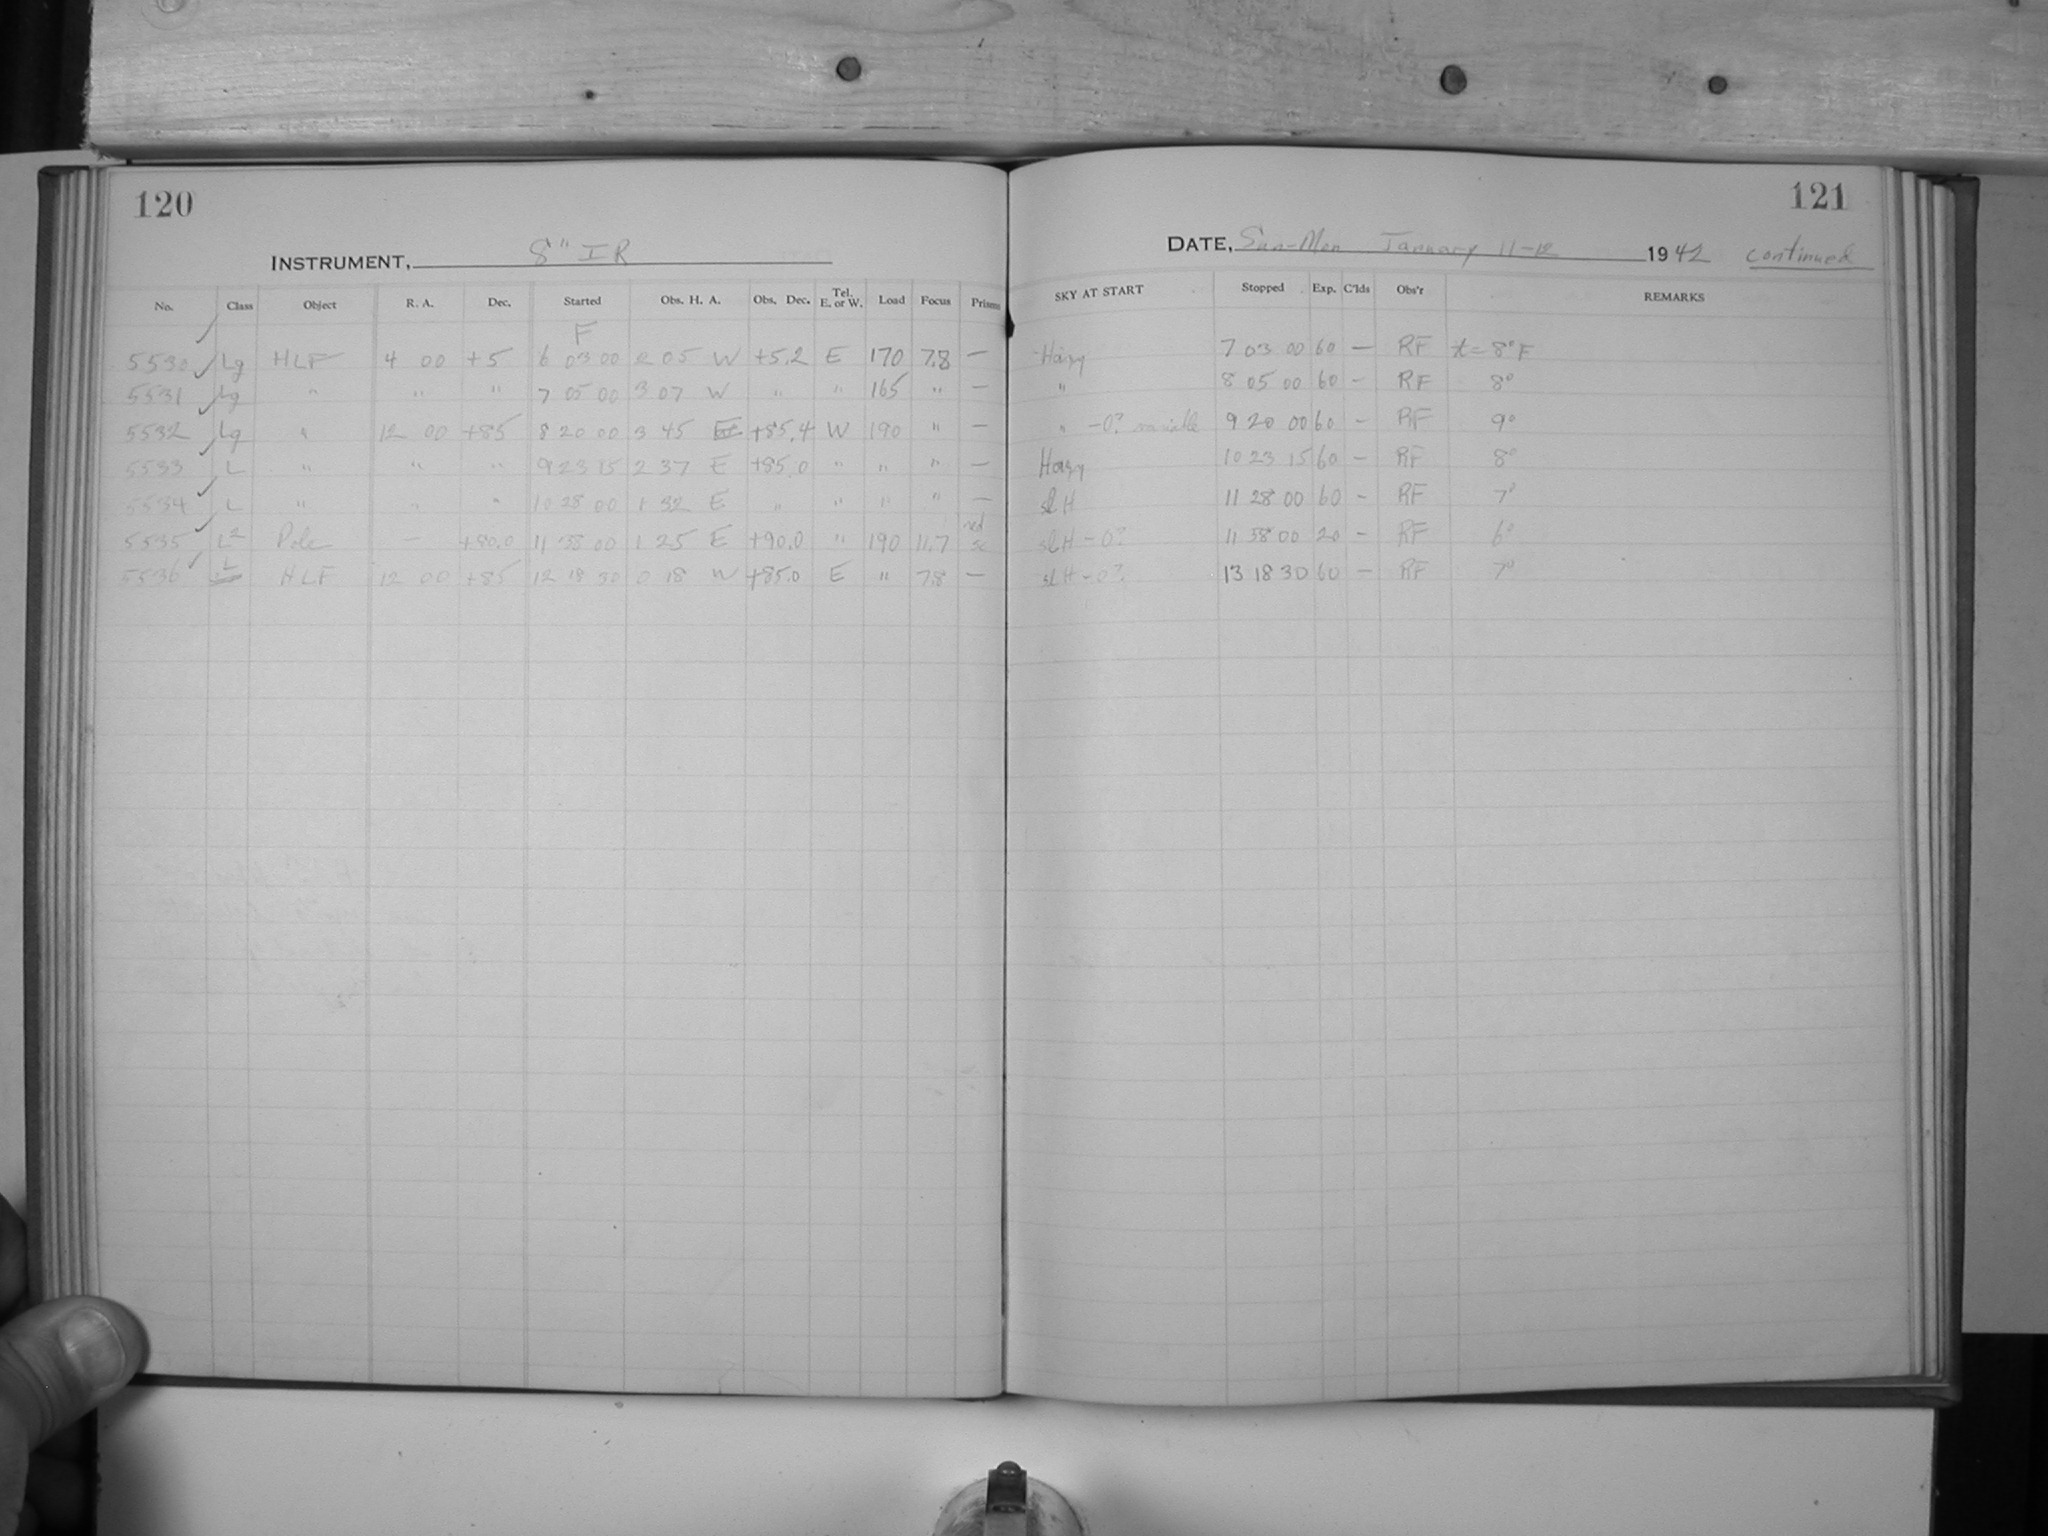 120
INSTRUMENT, 8" IR
No. Class Object R. A. Dec. Started Obs. H. A. Obs. Dec. Tel. E. or W. Load Focus Prisms
F
5530 Lg HLF 4 00 +5 6 03 00 2 05 W +5.2 E 170 7.8 —
5531 Lg " " " 7 05 00 3 07 W " " 165 " —
5532 Lg " 12 00 +85 8 20 00 3 45 E +85.4 W 190 " —
5533 L " " " 9 23 15 2 37 E +85.0 " " " —
5534 L " " " 10 28 00 1 32 E " " " " —
5535 L2 Pole — +90.0 11 38 00 1 25 E +90.0 " 190 11.7 red
5536 L HLF 12 00 +85 12 18 30 0 18 W +85.0 E " 7.8 —
121
DATE, Sun-Mon January 11-12 1942 continued
SKY AT START Stopped Exp. C'lds Obs'r REMARKS
Hazy 7 03 00 60 — RF t = 8° F
" 8 05 00 60 – RF 8°
" -0? variable 9 20 00 60 – RF 9°
Hazy 10 23 15 60 – RF 8°
sl H 11 28 00 60 – RF 7°
sl H - 0? 11 58 00 20 – RF 6°
sl H - 0? 13 18 30 60 — RF 7°